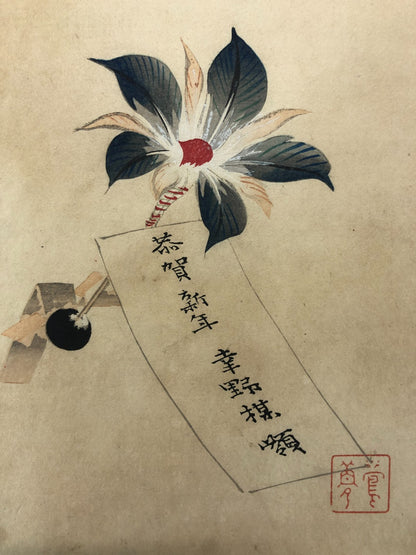 恭賀新年 幸野楳嶺